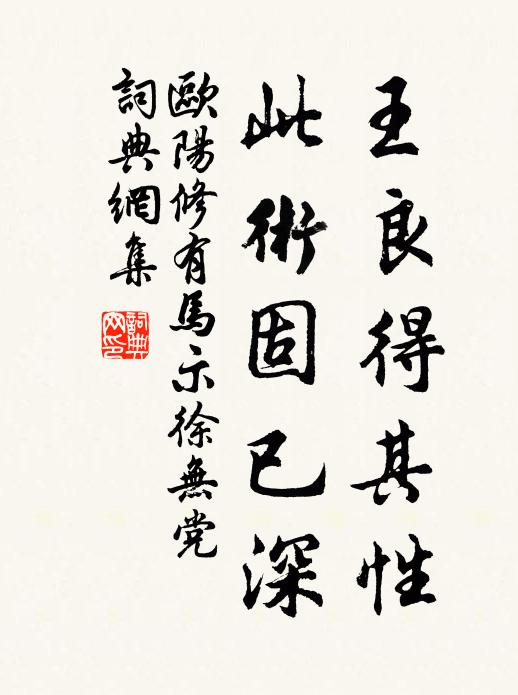 王良得其性
此術固已深
歐陽修有馬示徐無党
詞典網集
詞典網印